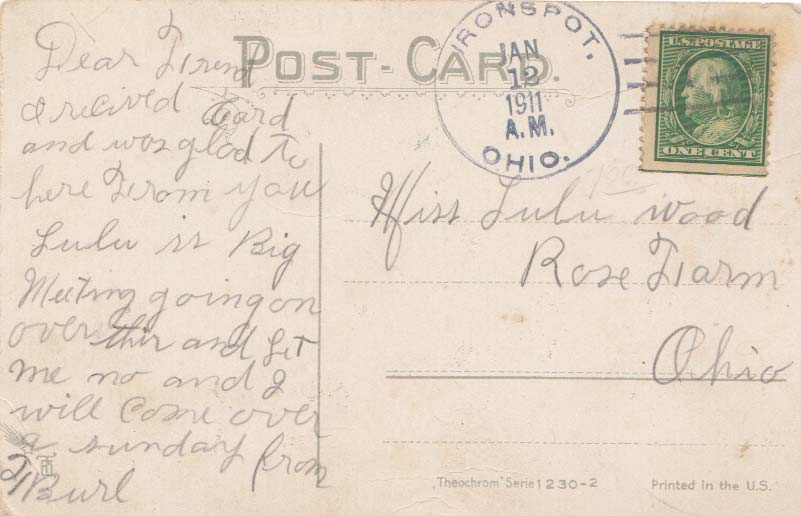 POST-CARD.
IRONSPOT,
JAN
12
1911
A.M.
OHIO.
U.S. POSTAGE
ONE CENT
Dear Frend
I recived Card
and was glad to
here From you
Lulu is Big
Meeting going on
over thir and Let
me no and I
will Come over
a sunday from
Burl
Miss Lulu Wood
Rose Farm
Ohio
"Theochrom" Serie 1230-2
Printed in the U.S.